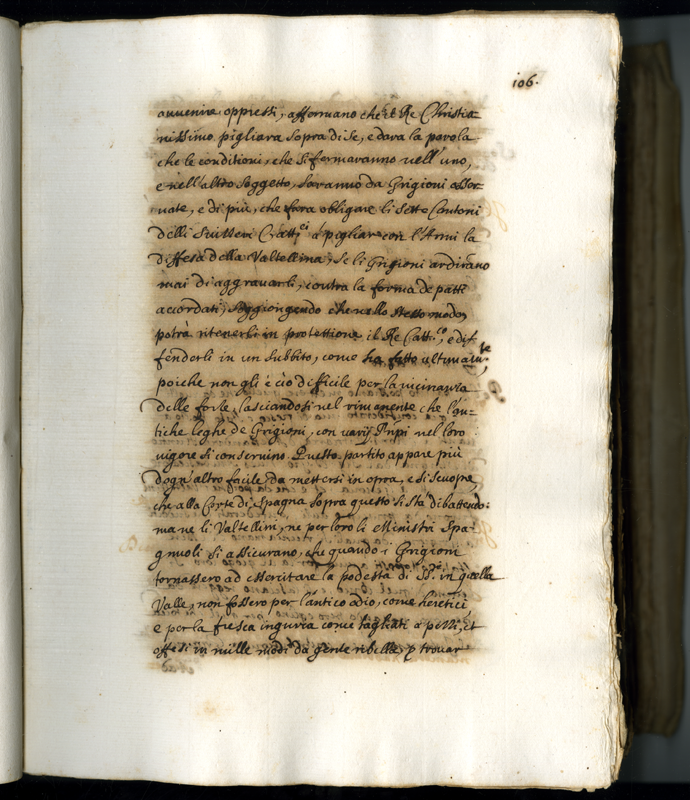 106.
auuenire oppressi, affermano che il Re Christia
nissimo pigliara sopra di se, e dara la parola
che le conditioni, che si fermaranno nell'uno,
e nell'altro soggetto, saranno da Grigioni osser
uate, e di più, che fara obligare li sette Cantoni
delli Suizzeri Catt.ci à pigliar con l'Armi la
diffesa della Valtellina, se li Grigioni ardirano
mai di aggrauarli, contra la forma de patti
acordati, soggiongendo che nello stesso modo
potrà ritenerli in protettione il Re Catt.co, e dif
fenderli in un subbito, come ha fatto ultimam.te,
poiche non gli è ciò difficile per la uicinanza
delle forze, lasciandosi nel rimanente che l'an-
tiche leghe de Grigioni, con varij Prnpi nel loro
uigore si conseruino. Questo partito appare più
d'ogn'altro facile da mettersi in opra, e si scuopre,
che alla Corte di Spagna sopra questo si stà dibattendo.
ma ne li Valtellini, ne per loro li Ministri Spa-
gnuoli si assicurano, che quando i Grigioni
tornassero ad essercitare la podestà di in quella
Valle, non fossero per l'antico odio, come heretici,
e per la fresca ingiuria come tagliati à pezzi, et
offesi in mille modi da gente ribelle, p trouar